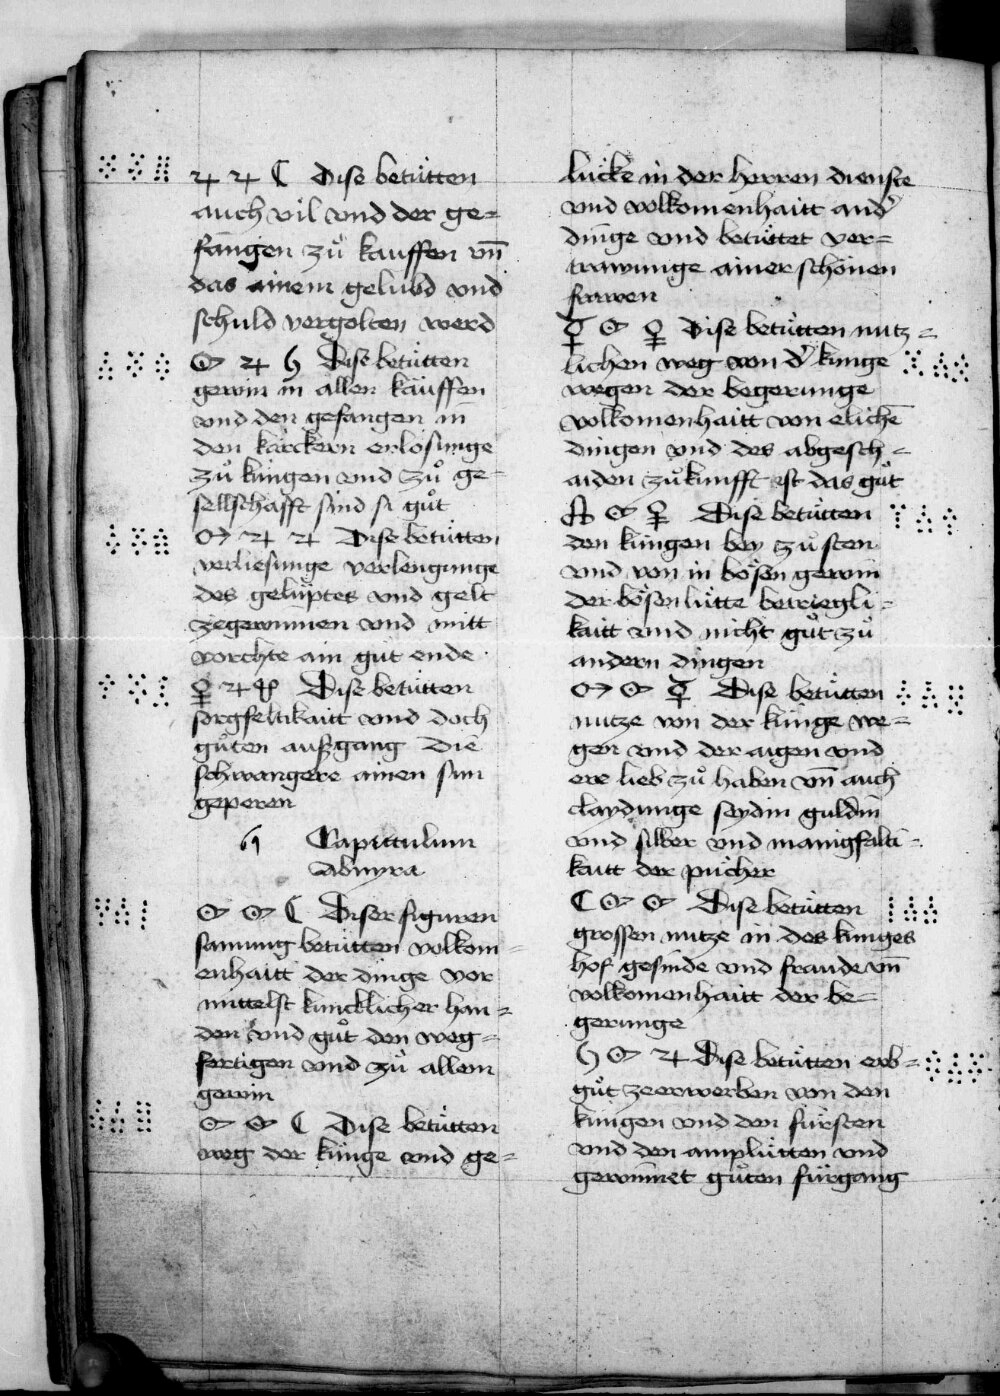 ♃ ♃ ☾ Dise betütten
auch vil vnd der ge=
fangen zů kauffen vn̄
das ainem gelubd vnd
schuld vergolten werd
☉ ♃ ♄ Dise betütten
gewin in allen käuffen
vnd den gefangen in
den kärckern erlösunge
zů kungen vnd zů ge=
sellschafft sind si gůt
♃ ♃ Dise betütten
verliesunge verlengunge
des gelüptes vnd gelt
zegewinnen vnd mitt
vorchte ain gut ende
♀ ♃ Dise betütten
sorgfeltikaitt vnd doch
gůten außgang Die
schwangere ainen sun
geperen
Capittulum
Abmyra
☉ ☉ ☾ Diser figuren
samung betütten volkom=
enhaitt der dinge vor
mittelst kuncklicher han=
den vnd gůt den weg=
fertigen vnd zů allem
gewin
☉ ☉ ☾ Dise betütten
weg der künge vnd ge=
lücke in der herren dienste
vnd volkomenhaitt and̕
dinge vnd betüttet ver=
trawunge ainer schönen
frawen
☿ ☉ ♀ Dise betütten nutz=
lichen weg von d̕ kunge
wegen der begerunge
volkomenhaitt von elichē
dingen vnd des abgesch=
aiden zůkunfft ist das gůt
☉ ♀ Dise betütten
den kungen bey zů sten
vnd von in bösen gewin
der bösen lütte betriegli=
kaitt vnd nicht gůt zů
andern dingen
☉ ☿ Dise betütten
nutze von der künge we=
gen vnd der aigen vnd
ere lieb zů haben vn̄ auch
claydunge seydin guldin
vnd silber vnd manigfalti=
kaitt der pücher
☾ ☉ ☉ Dise betütten
grossen nutze in des kunges
hof gesinde vnd fraude vn̄
volkomenhaitt der be=
gerunge
♄ ☉ ♃ Dise betütten erb=
gůt zeerwerben von den
kungen vnd den fürsten
vnd den amplütten vnd
gewinnet gůten fürgang